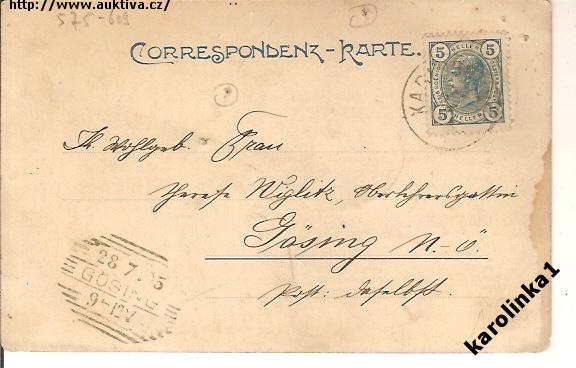 http://www.auktiva.cz/
575-609
CORRESPONDENZ-KARTE.
5 HELLER 5
5 HELLER 5
KA
Wohlgeb. Frau
Therese Wiglitz, Oberlehrersgattin
Gösing N-Ö.
Post: daselbst.
28 7 05
GÖSING
9-12V
karolinka1